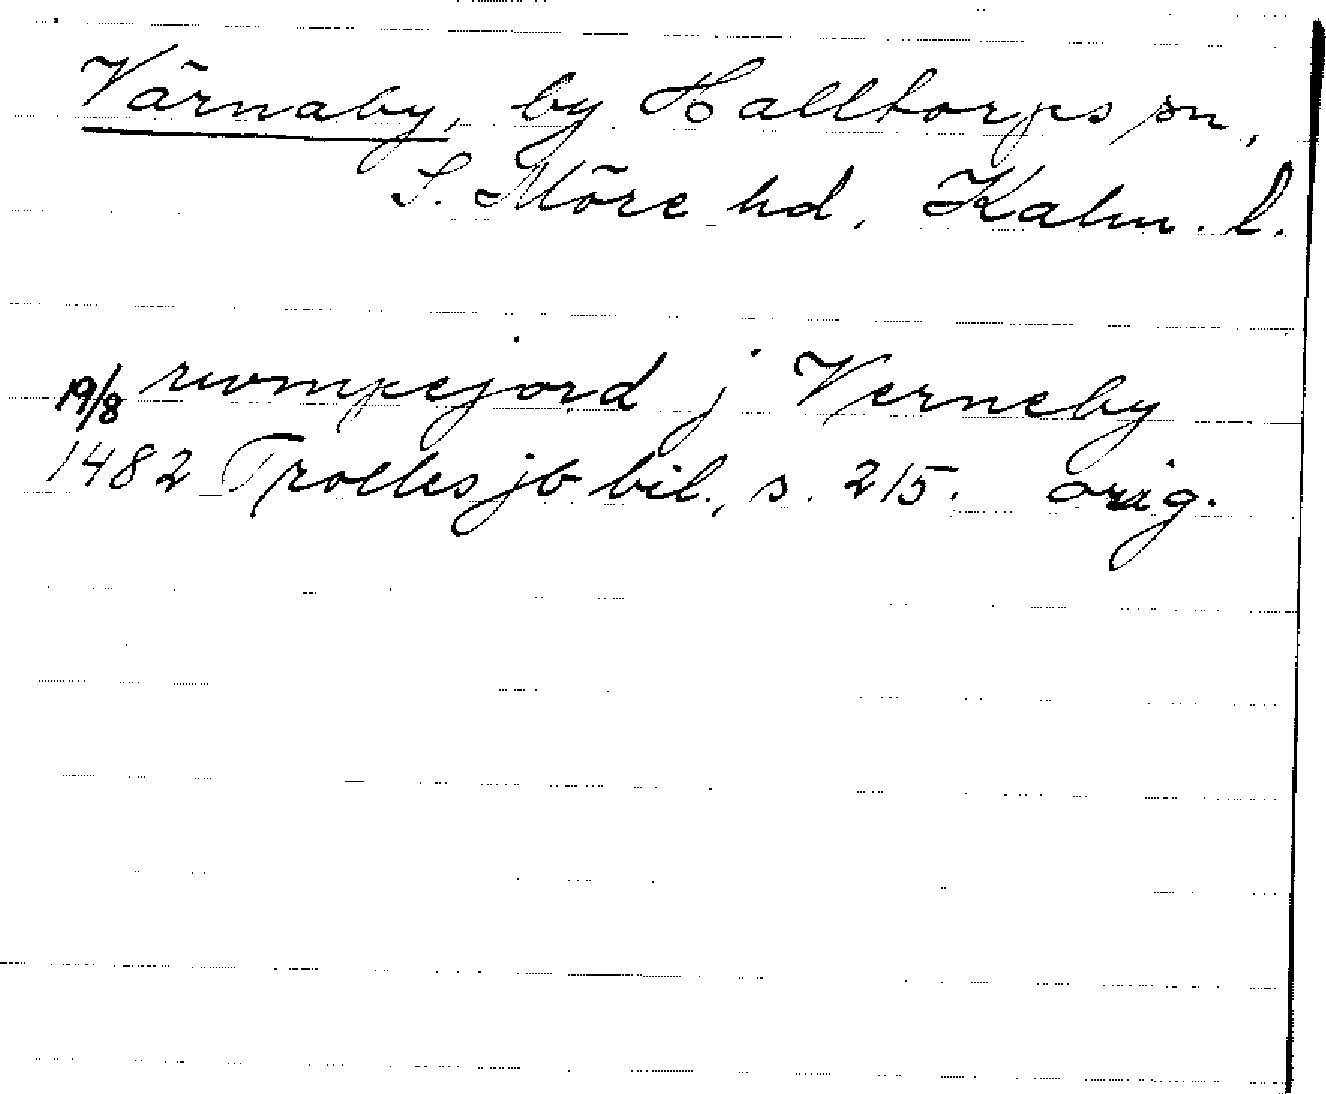 Värnaby, by Halltorps sn,
S. Möre hd, Kalm. l.
19/8 rwmpejord j Verneby
1482 Trolles jb bil., s. 215. orig.